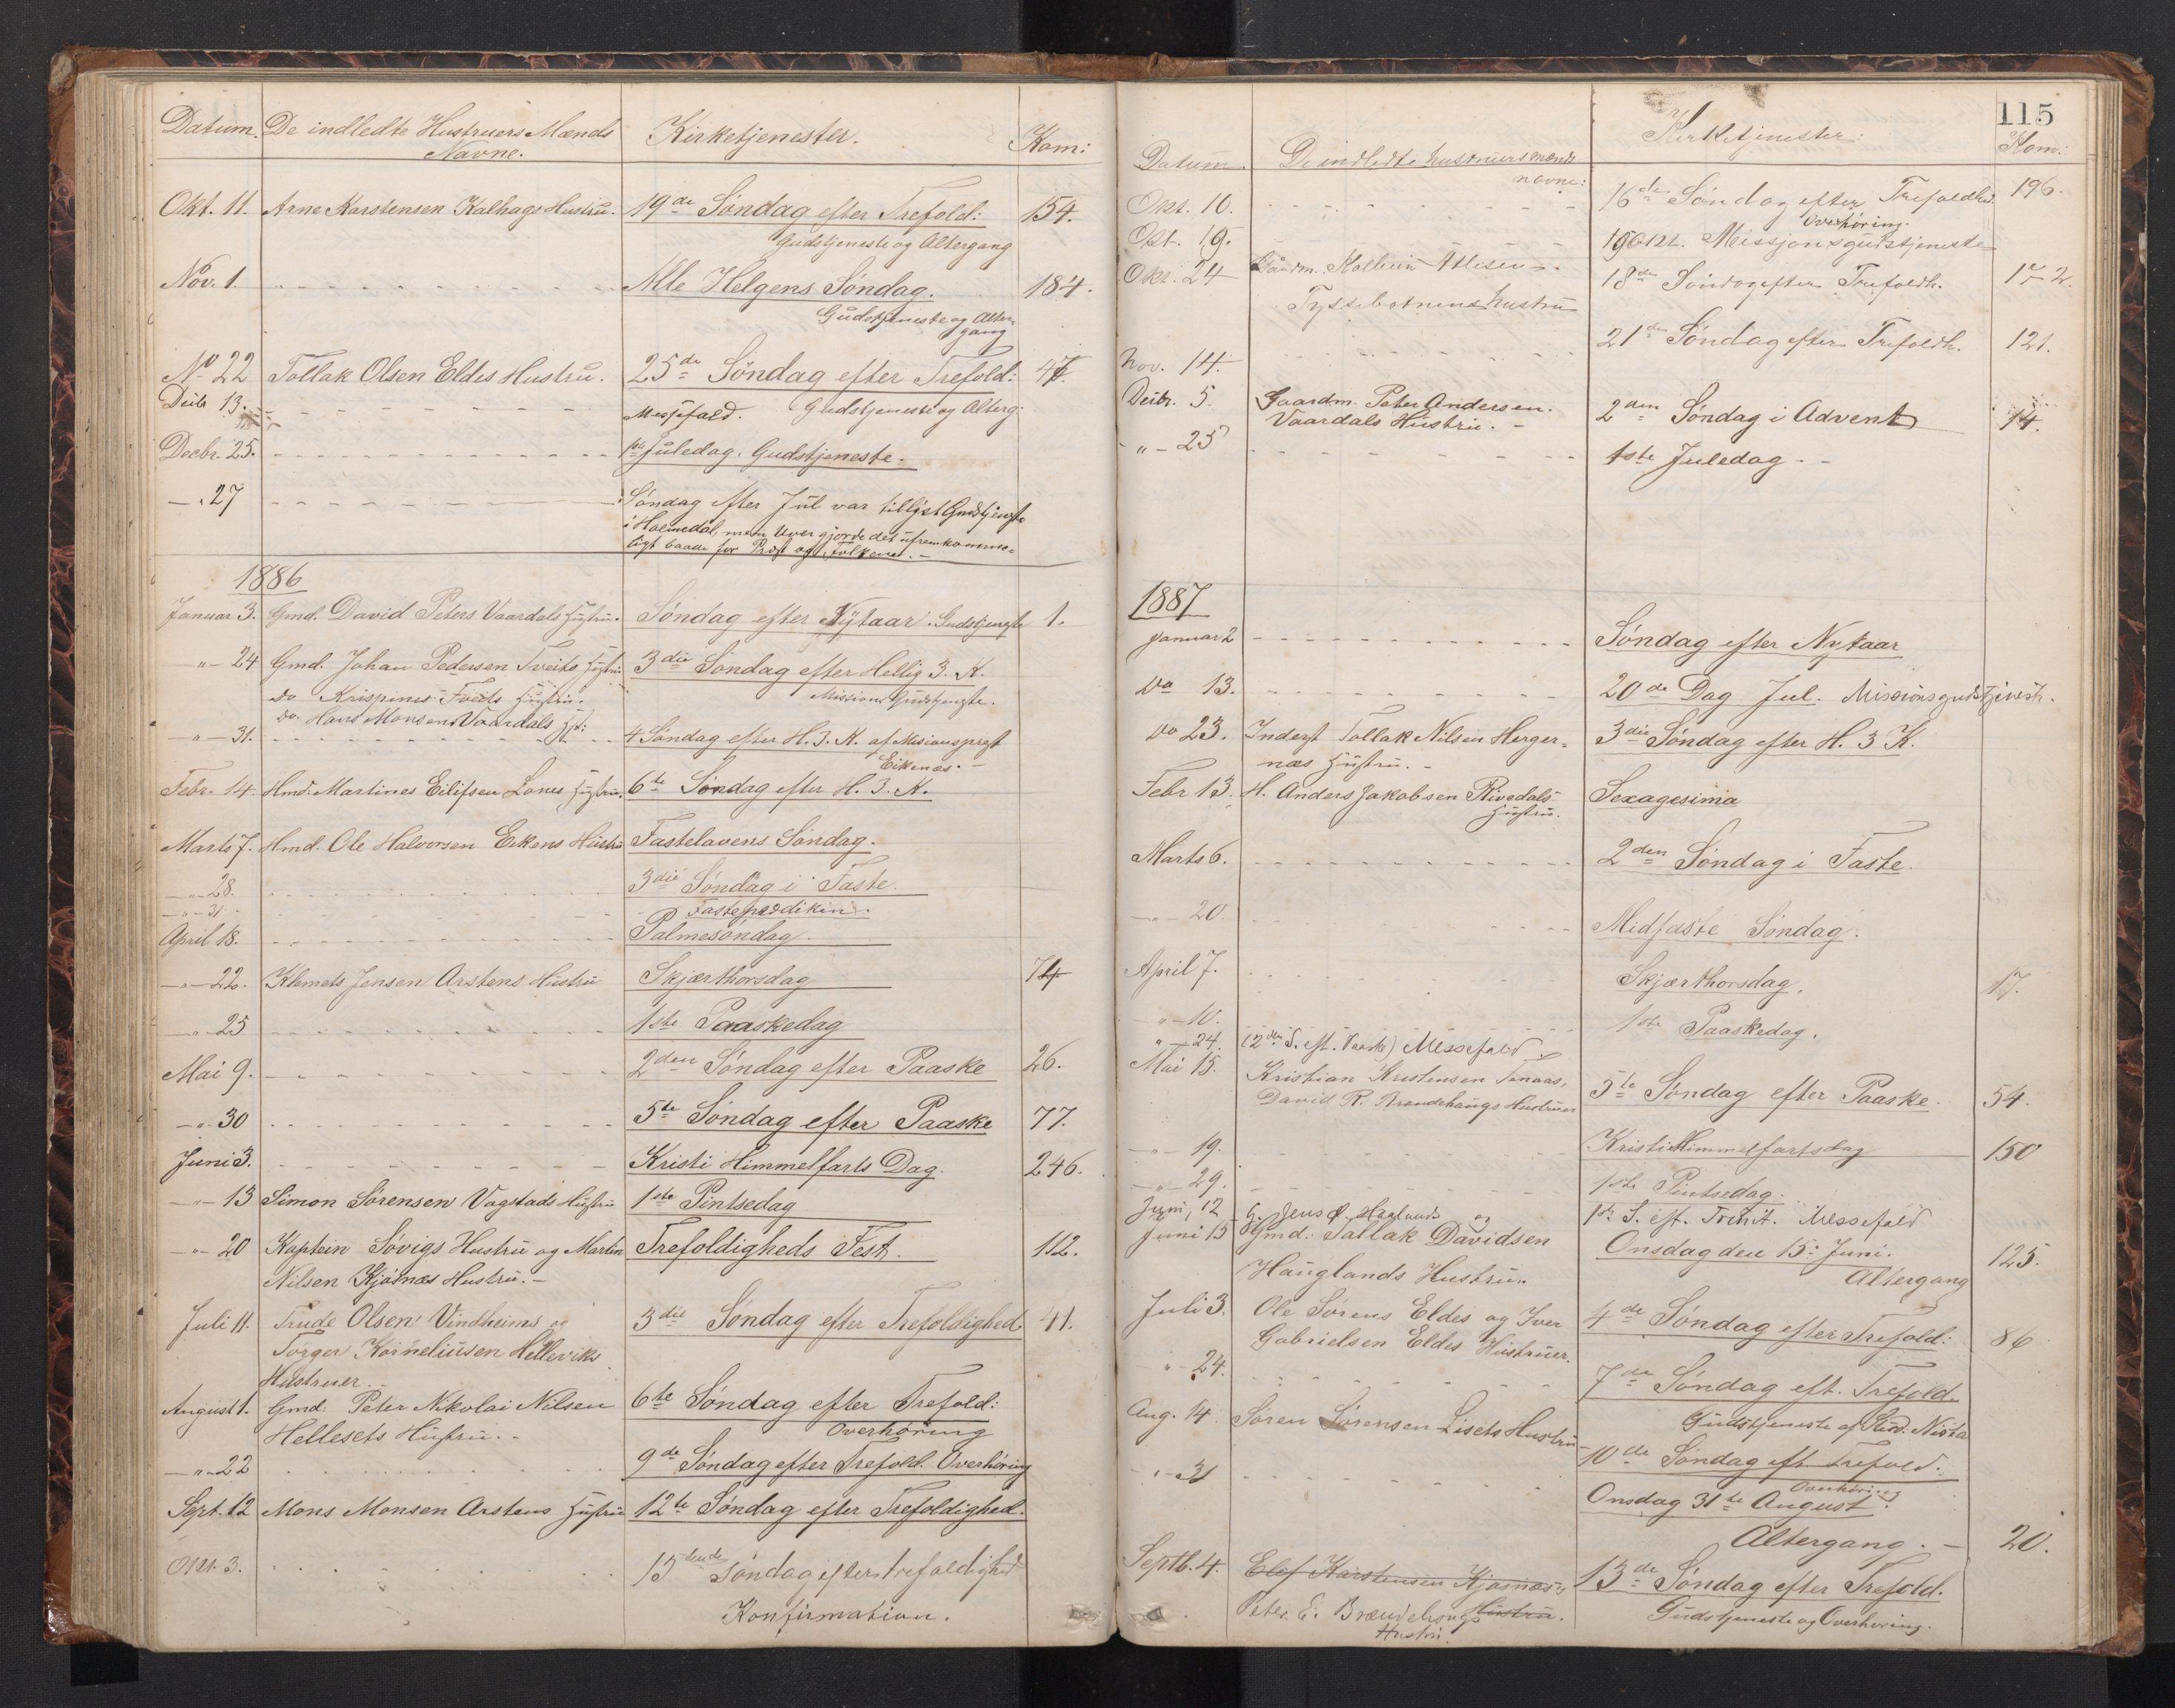 Datum. De indledte Hustruers Mænds Kirketjenester. Kom:
Navne.
Okt. 11. Arne Karstensen Kalhags Hustru. 19de Søndag efter Trefold: 154.
Gudstjeneste og Altergang
Nov. 1. Alle Helgens Søndag. 184.
Gudstjeneste og Alter-
gang
No 22 Tollak Olsen Eldes Hustru. 25de Søndag efter Trefold: 47.
Gudstjeneste og Alterg:
Decbr 13. Messefald.
Decbr. 25. 1ste Juledag. Gudstjeneste.
— " 27 Søndag efter Jul var tillyst Gudstjeneste
i Holmedal, men Uveir gjorde det ufremkomme-
ligt baade for Præst og Folkene. -
1886
Januar 3. Gmd. David Peters Vaardals Hustru. Søndag efter Nytaar. Gudstjeneste 1.
" - 24 Gmd. Johan Pedersen Tveits Hustru 3die Søndag efter Hellig 3. K.
do Krispinus Tveits Hustru. Missions Gudstjeneste.
do. Hans Monsen Vaardals Hst:
- " - 31. 4 Søndag efter H. 3. K. af Misionsprest
Eikenæs. -
Febr. 14. Hmd. Martines Eilifsen Lones Hustru. 6te Søndag efter H. 3. K.
Marts 7. Hmd. Ole Halvorsen Eikens Hustru Fastelavens Søndag.
- " - 28. 3die Søndag i Faste.
- " - 31. Fasteprædiken.
April 18. Palmesøndag.
- " - 22. Klemets Jensen Arstens Hustru Skjærthorsdag 74
- " - 25 1ste Paaskedag
Mai 9. 2den Søndag efter Paaske 26.
- " - 30 5te Søndag efter Paaske 77.
Juni 3. Kristi Himmelfarts Dag. 246.
- " - 13 Simon Sørensen Vagstads Hustru 1ste Pintsedag
- " - 20 Kaptein Søvigs Hustru og Martin Trefoldigheds Fest. 112.
Nilsen Kjøsnæs Hustru. -
Juli 11. Trude Olsen Vindheims og 3die Søndag efter Trefoldighed. 41.
Torger Korneliusen Helleviks
Hustruer
August 1. Gmd: Peter Nikolai Nilsen 6te Søndag efter Trefold:
Hellesets Hustru. - Overhøring
- " - 22 9de Søndag efter Trefold. Overhøring
Sept. 12 Mons Monsen Arstens Hustru 12te Søndag efter Trefoldighed.
Okt. 3. 15dende Søndag efter trefoldighed
Konfirmation.
115
Datum. De indledte hustruers mænds Kirketjenester: Kom:
navne:
Okt. 10. 16de Søndag efter Trefoldhed. 196.
Overhøring.
Okt. 19. Missjonsgudstjeneste
Okt. 24 Gaardm. Kolbein Atlesen 18de Søndag efter Trefoldh. 172.
Tyssebotnens hustru
Nov. 14. 21de Søndag efter Trefoldh. 121.
Decbr. 5. Gaardm. Peter Andersen. 2den Søndag i Advent 14.
Vaardals Hustru. -
- " - 25 1ste Juledag. -
1887
Januar 2 Søndag efter Nytaar
Do 13. 20de Dag Jul. Missionsgudstjenest.
Do 23. Inderst Tollak Nilsen Herger- 3die Søndag efter H. 3 K.
næs Hustru. -
Febr 13. H. Anders Jakobsen Rivedals Sexagesima
Hustru.
Marts 6. 2den Søndag i Faste.
- " - 20. Midfaste Søndag.
April 7. Skjærthorsdag. 17.
- " - 10. 1ste Paaskedag.
" - 24. (2den S. eft. Paaske) Messefald
Mai 15. Kristian Kristensen 5te Søndag efter Paaske. 54.
David R. Brændehaugs Hustruer
- " - 19. Kristi Himmelfartsdag 150
- " - 29. 1ste Pintsedag.
Juni, 12 G. Jens Haglunds og 1ste S. eft. Trinit. Messefald
Juni 15 Gmd: Tallak Davidsen Onsdag den 15: Juni. 125.
Hauglands Hustru. Altergang
Juli 3. Ole Sørens Eldes og Iver 4de Søndag efter Trefold: 86
Gabrielsen Eldes Hustruer.
- " - 24. 7de Søndag eft. Trefold.
Gudstjeneste af Nista
Aug. 14. Søren Sørensen Lisets Hustru 10de Søndag eft Trefold.
Overhøring
- " - 31 Onsdag 31te August.
Altergang. - 20.
Septb. 4. Elef Karstensen Kjøsnæs 13de Søndag efter Trefold.
Hustru.
Peter E. Brændehougs Gudstjeneste og Overhøring.
Hustru.